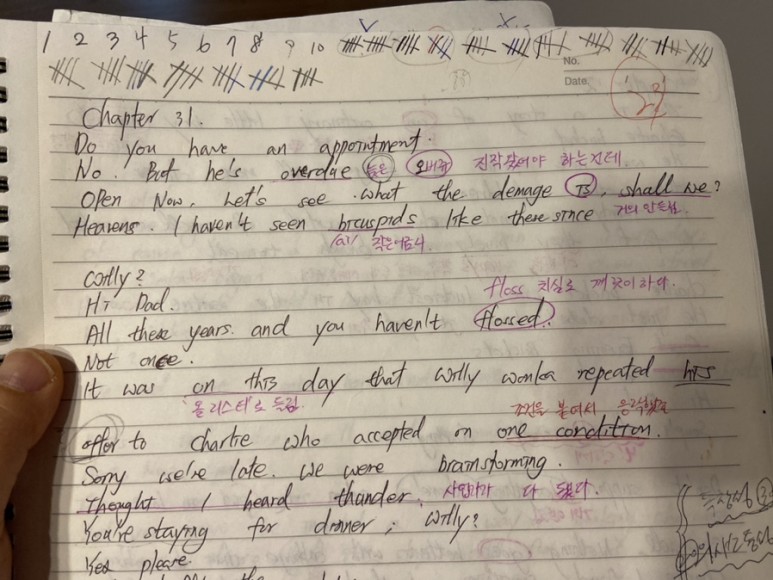 1 2 3 4 5 6 7 8 9 10
No.
Date.
Chapter 31.
Do you have an appointment.
No. But he's overdue 진작 왔어야 하는건데.
Open Now. Let's see what the demage is, shall we?
Heavens. I haven't seen bicuspids like these since 거의 안들림
작은어금니
willy?
floss 치실로 깨끗이하다.
Hi Dad.
All these years. and you haven't flossed.
Not once.
It was on this day that willy wonka repeated his
올리스데'로 들림
조건을 붙여서 응락했죠
offer to Charlie who accepted on one condition.
Sorry we're late. we were brainstorming.
Thought I heard thunder. 다
You're staying for dinner, willy?
Yes please.